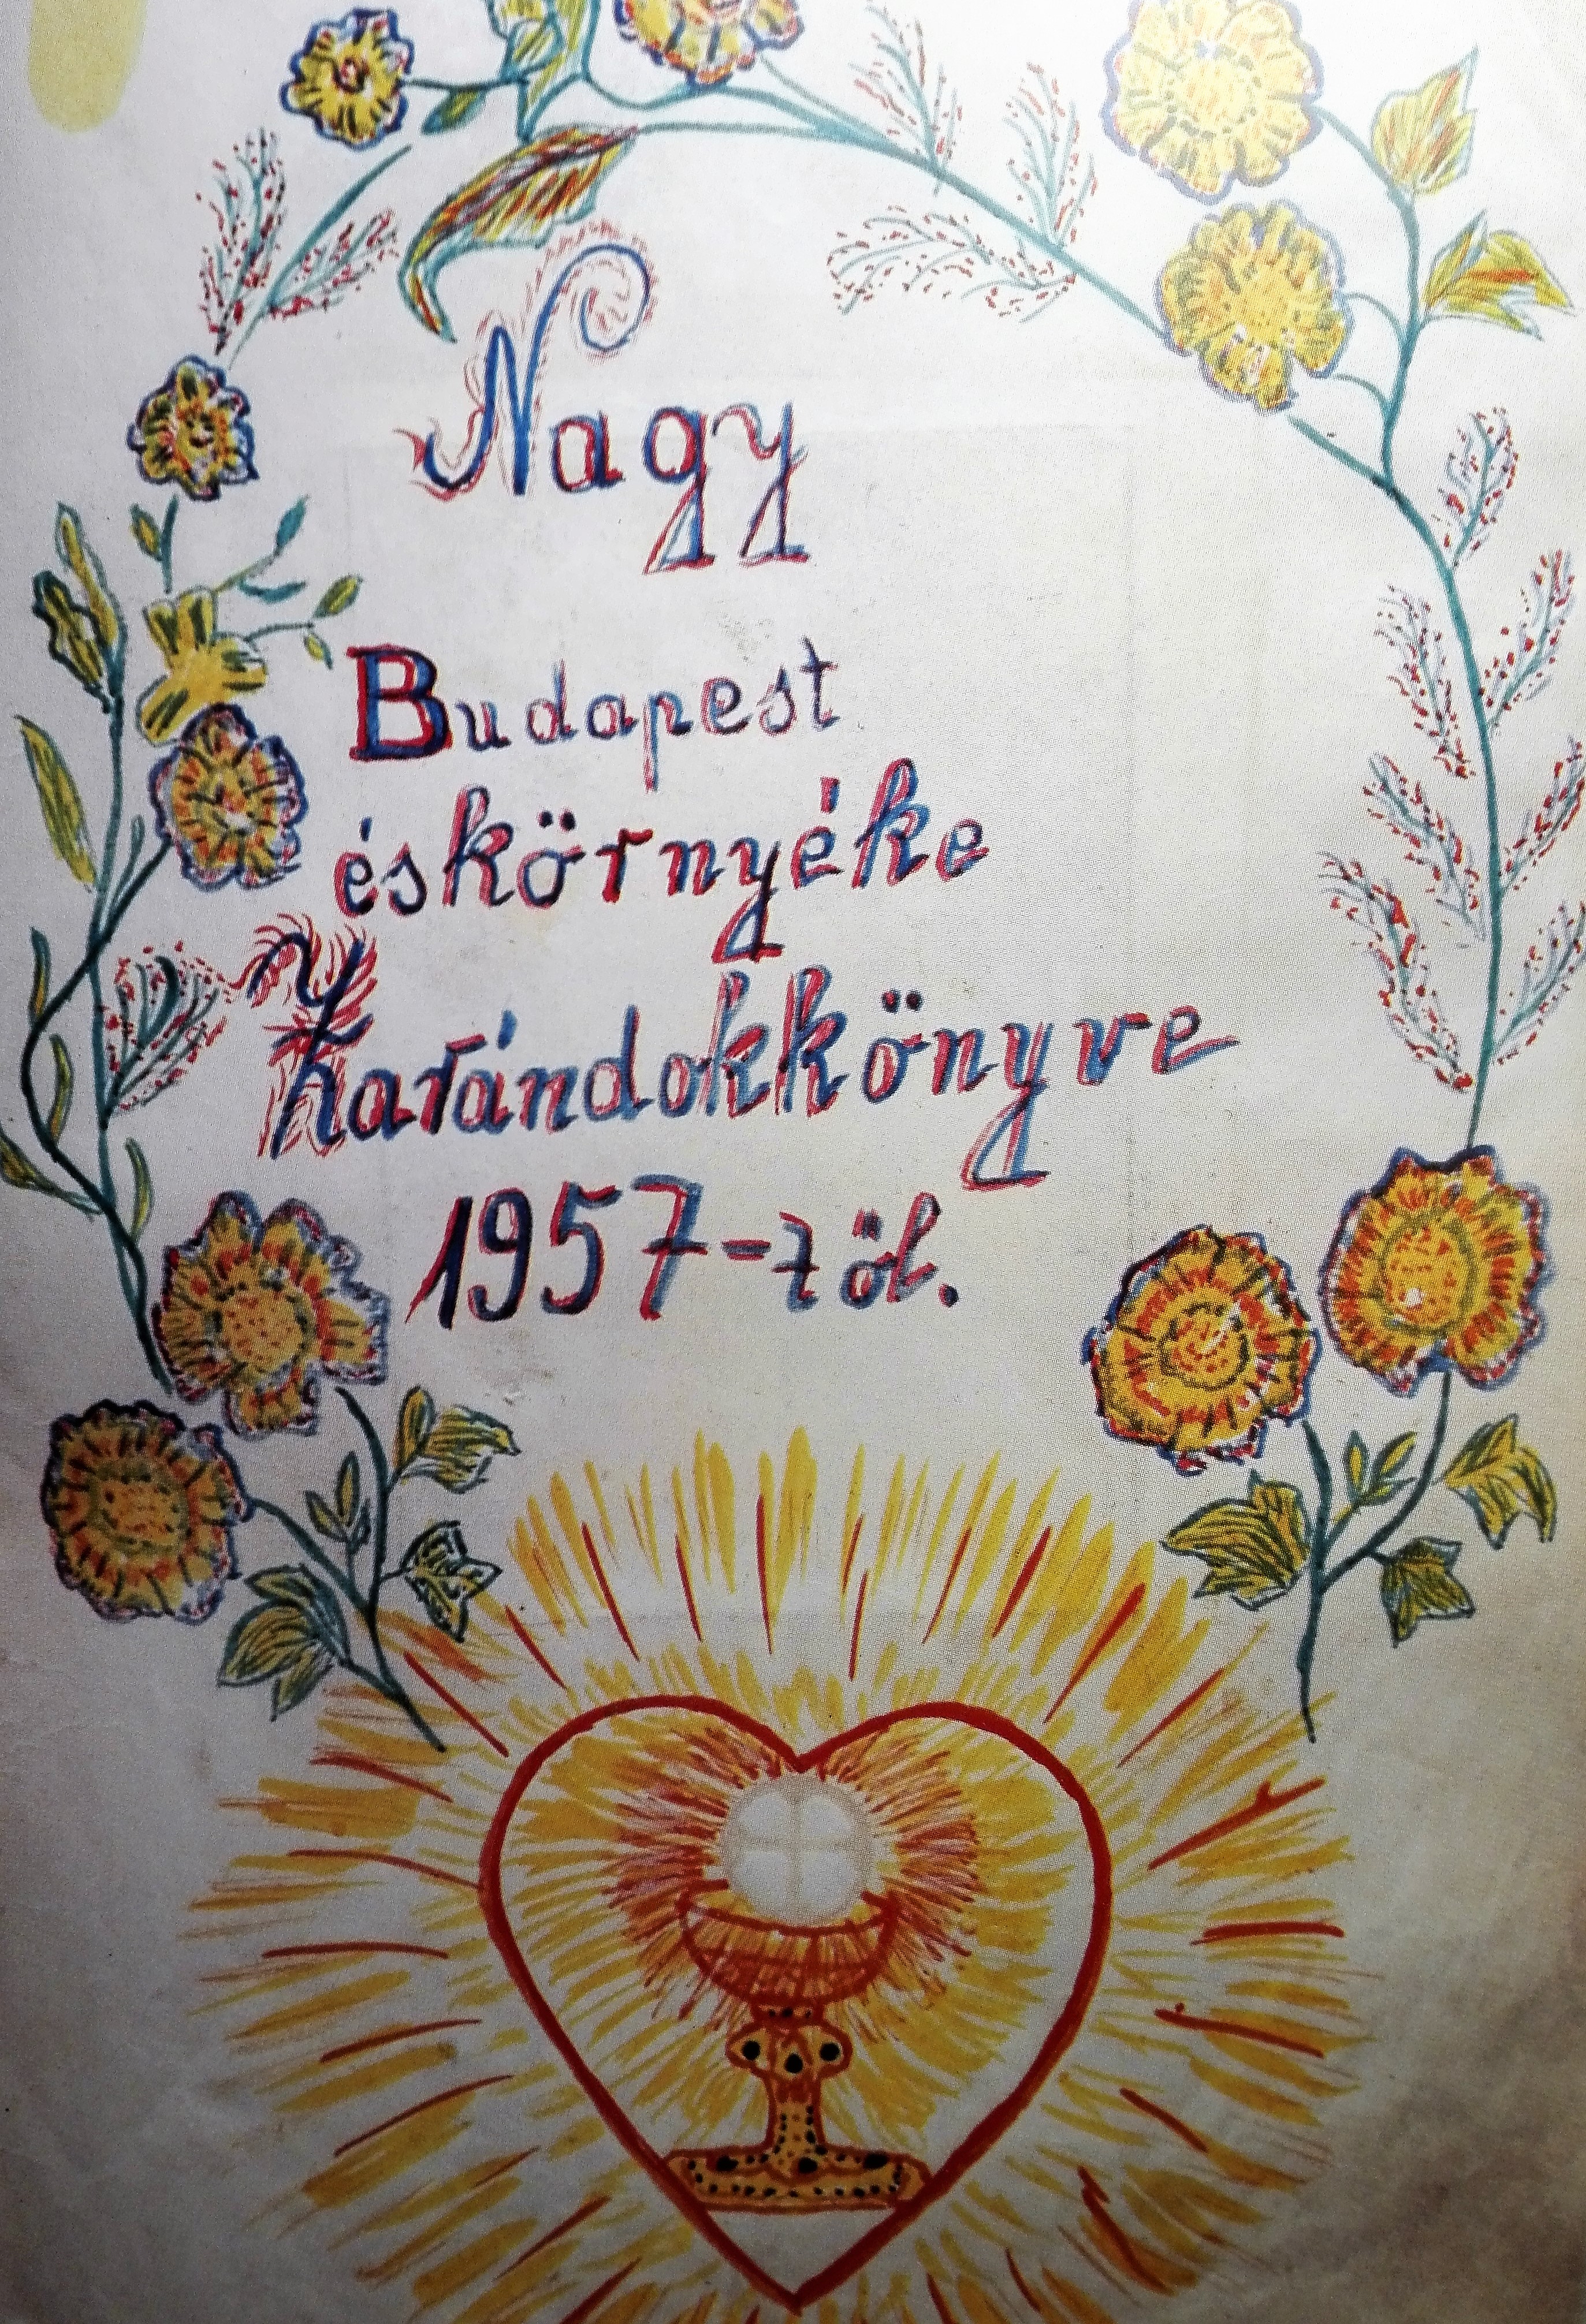 Nagy
Budapest
és környéke
Zarándokkönyve
1957-től.